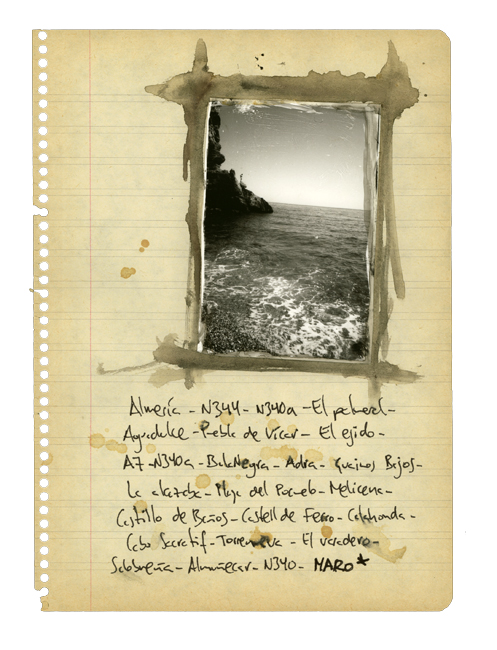 Almería - N344 - N340a - El palmeral -
Aguadulce - Puebla de Vícar - El ejido -
A7 - N340a - BalaNegra - Adra - Guainos Bajos -
La alcazaba - Playa del Pozuelo - Melicena -
Castillo de Baños - Castell de Ferro - Calahonda -
Cabo Sacratif - Torrenueva - El varadero -
Salobreña - Almuñecar - N340 - MARO*